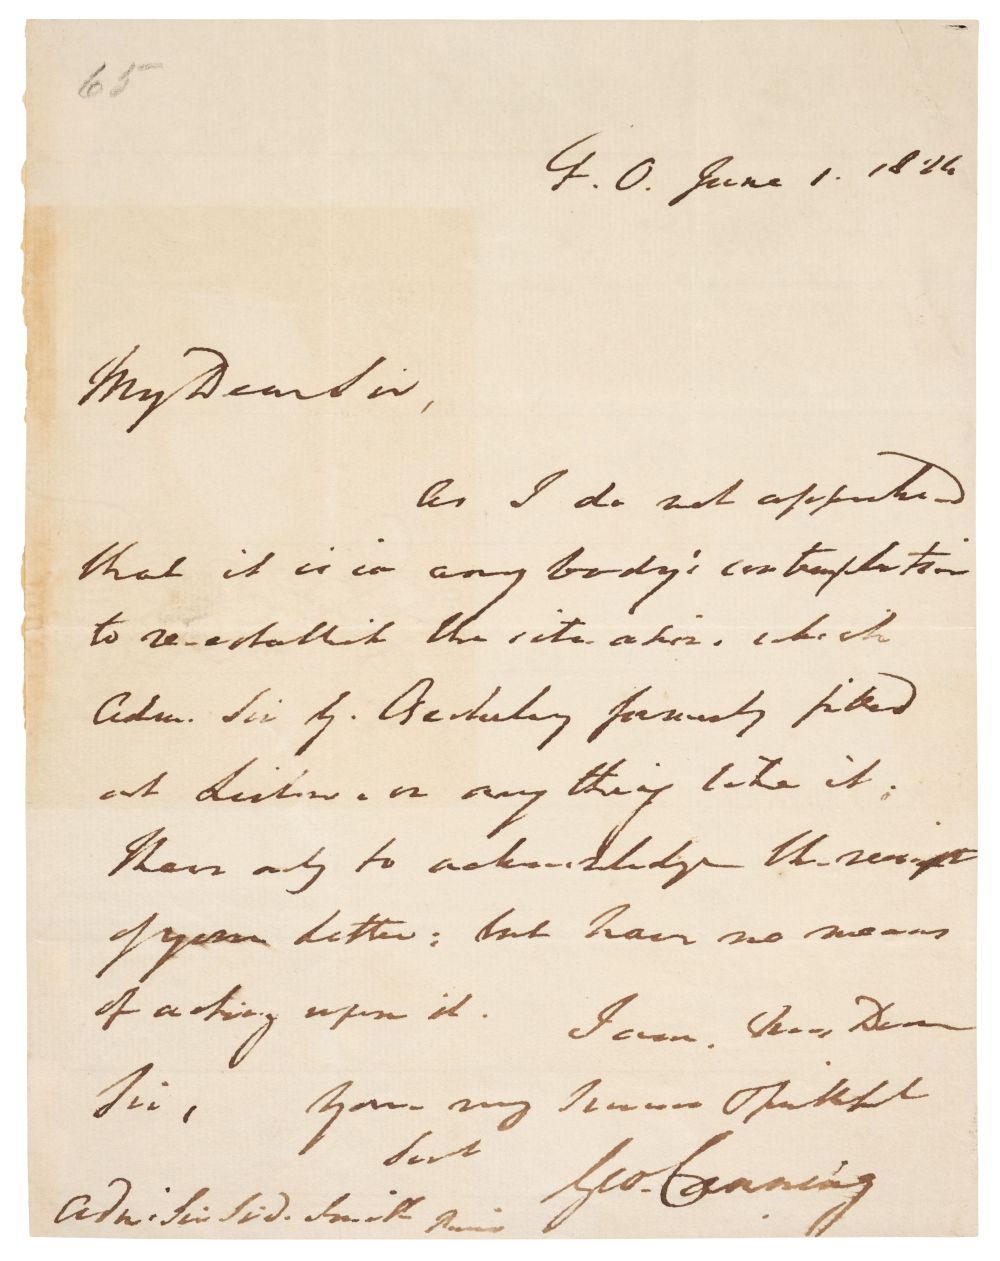 65
F. O. June 1. 1826
My Dear Sir,
As I do not apprehend
that it is in any body's contemplation
to re-establish the situation, which
Adm. Sir G. Berkeley formerly filled
at Lisbon, or any thing like it,
I have only to acknowledge the receipt
of your letter; but have no means
of acting upon it.
I am, My Dear
Sir, Your very humble & faithful
Servt
Geo. Canning
Adm. Sir Sid. Smith